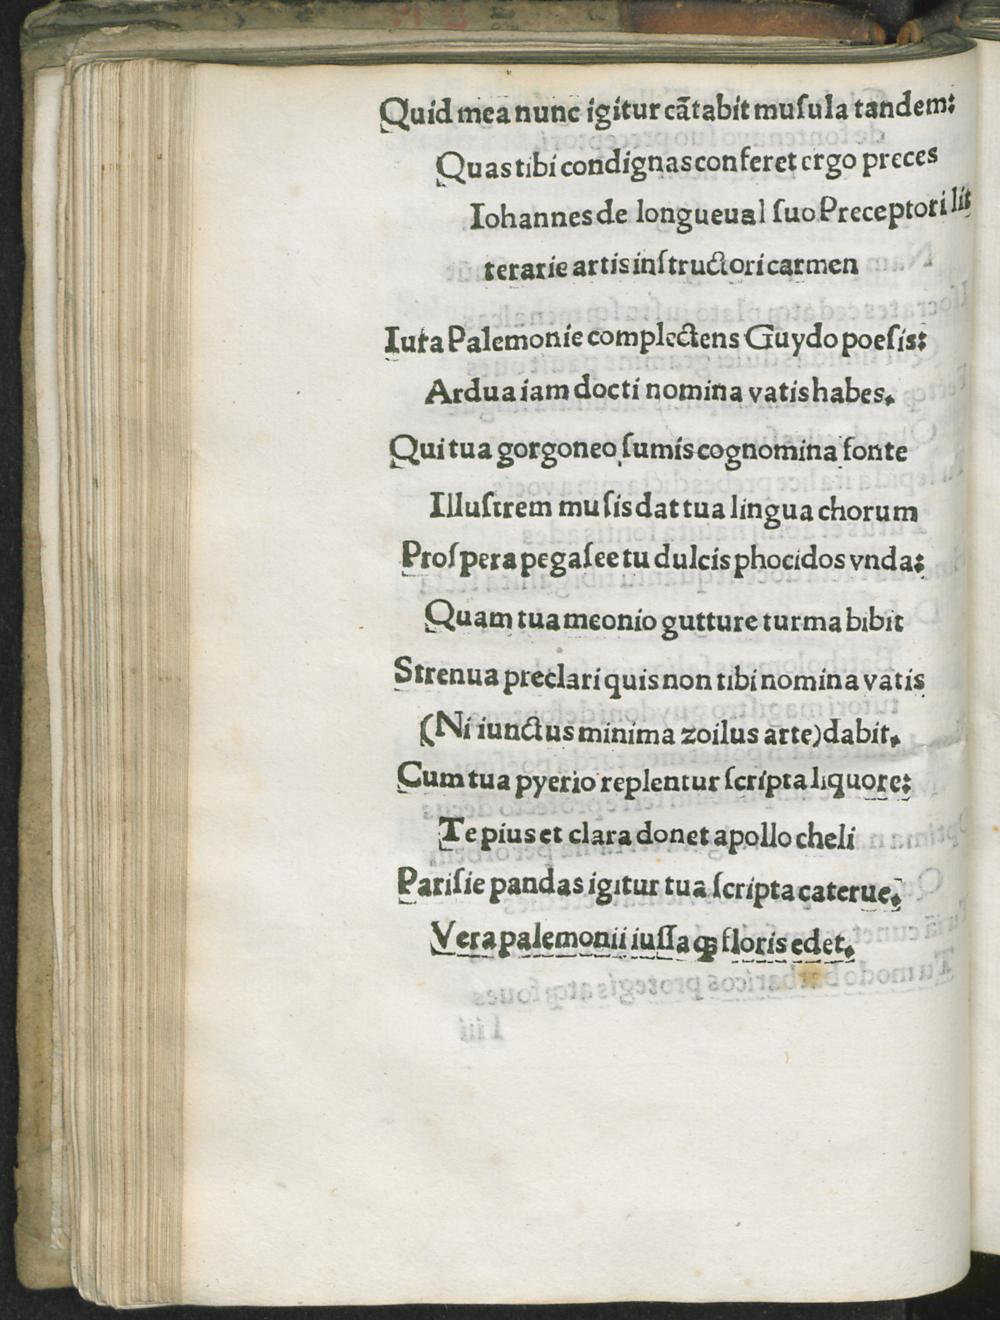 Quid mea nunc igitur cãtabit muſula tandem:
Quas tibi condignas conferet ergo preces
Iohannes de longueual ſuo Preceptori lit
terarie artis inſtructori carmen
Iura Palemonie complectens Guydo poeſis:
Ardua iam docti nomina vatis habes.
Qui tua gorgoneo ſumis cognomina fonte
Illuſtrem muſis dat tua lingua chorum
Proſpera pegaſee tu dulcis phocidos vnda:
Quam tua meonio gutture turma bibit
Strenua preclari quis non tibi nomina vatis
(Ni iunctus minima zoilus arte) dabit.
Cum tua pyerio replentur ſcripta liquore:
Te pius et clara donet apollo cheli
Pariſie pandas igitur tua ſcripta caterue.
Vera palemonii iuſſa qꝫ floris edet.